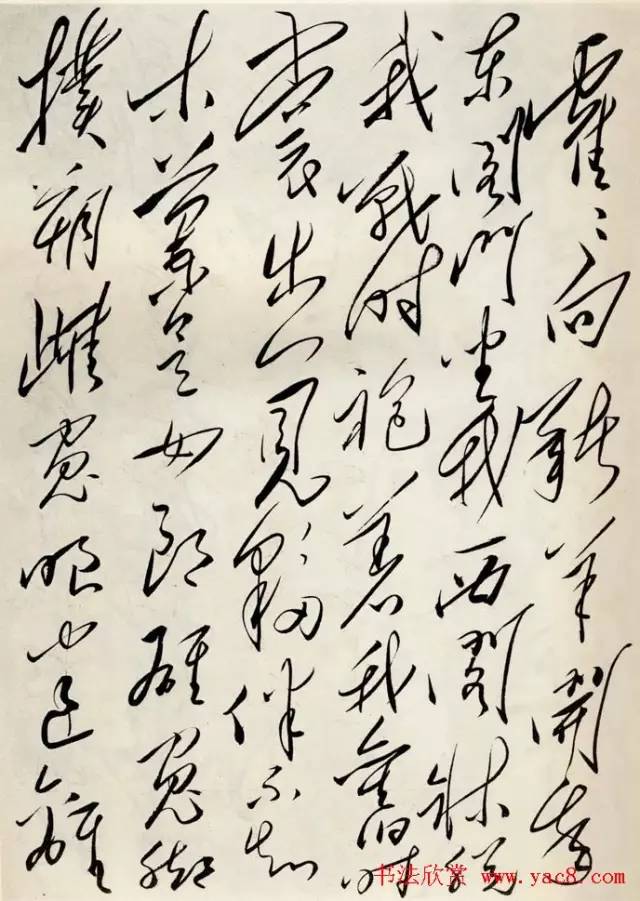 霍〻向猪羊開我
东阁门坐我西阁床脱
我戰时袍着我舊时
裳出门見夥伴不知
木蘭是女郎雄兔脚
撲朔雌兔眼迷離
书法欣赏 www.yac8.com